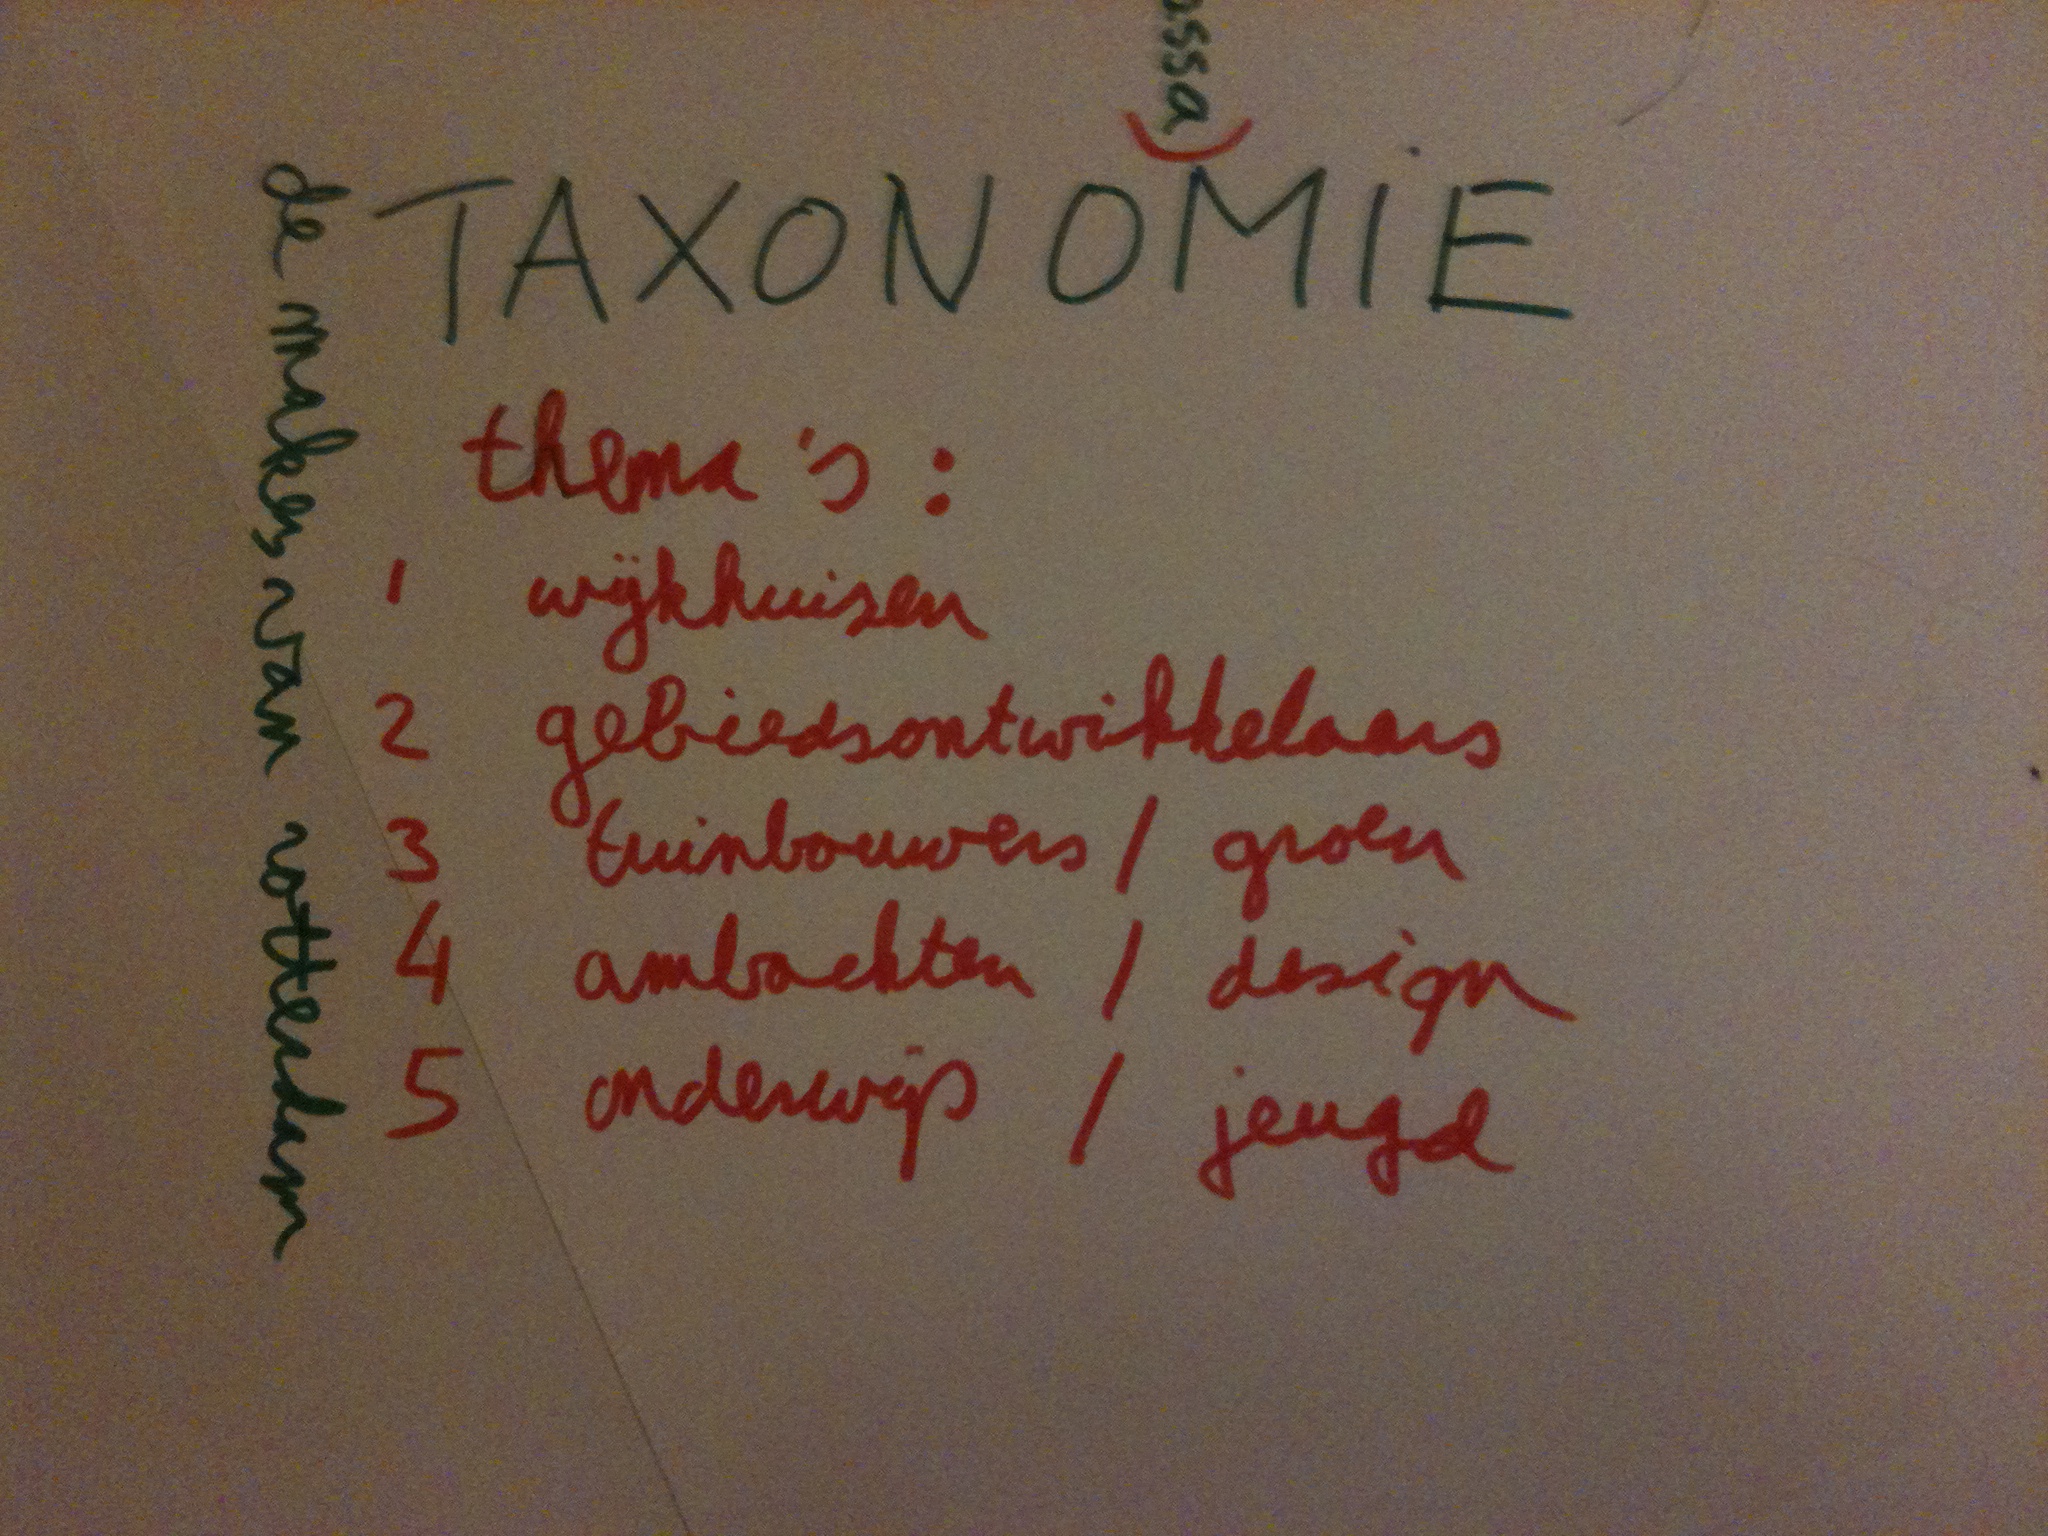 ossa)
TAXONOMIE
de makers van rotterdam
thema's:
1 wijkhuizen
2 gebiedsontwikkelaars
3 tuinbouwers / groen
4 ambachten / design
5 onderwijs / jeugd